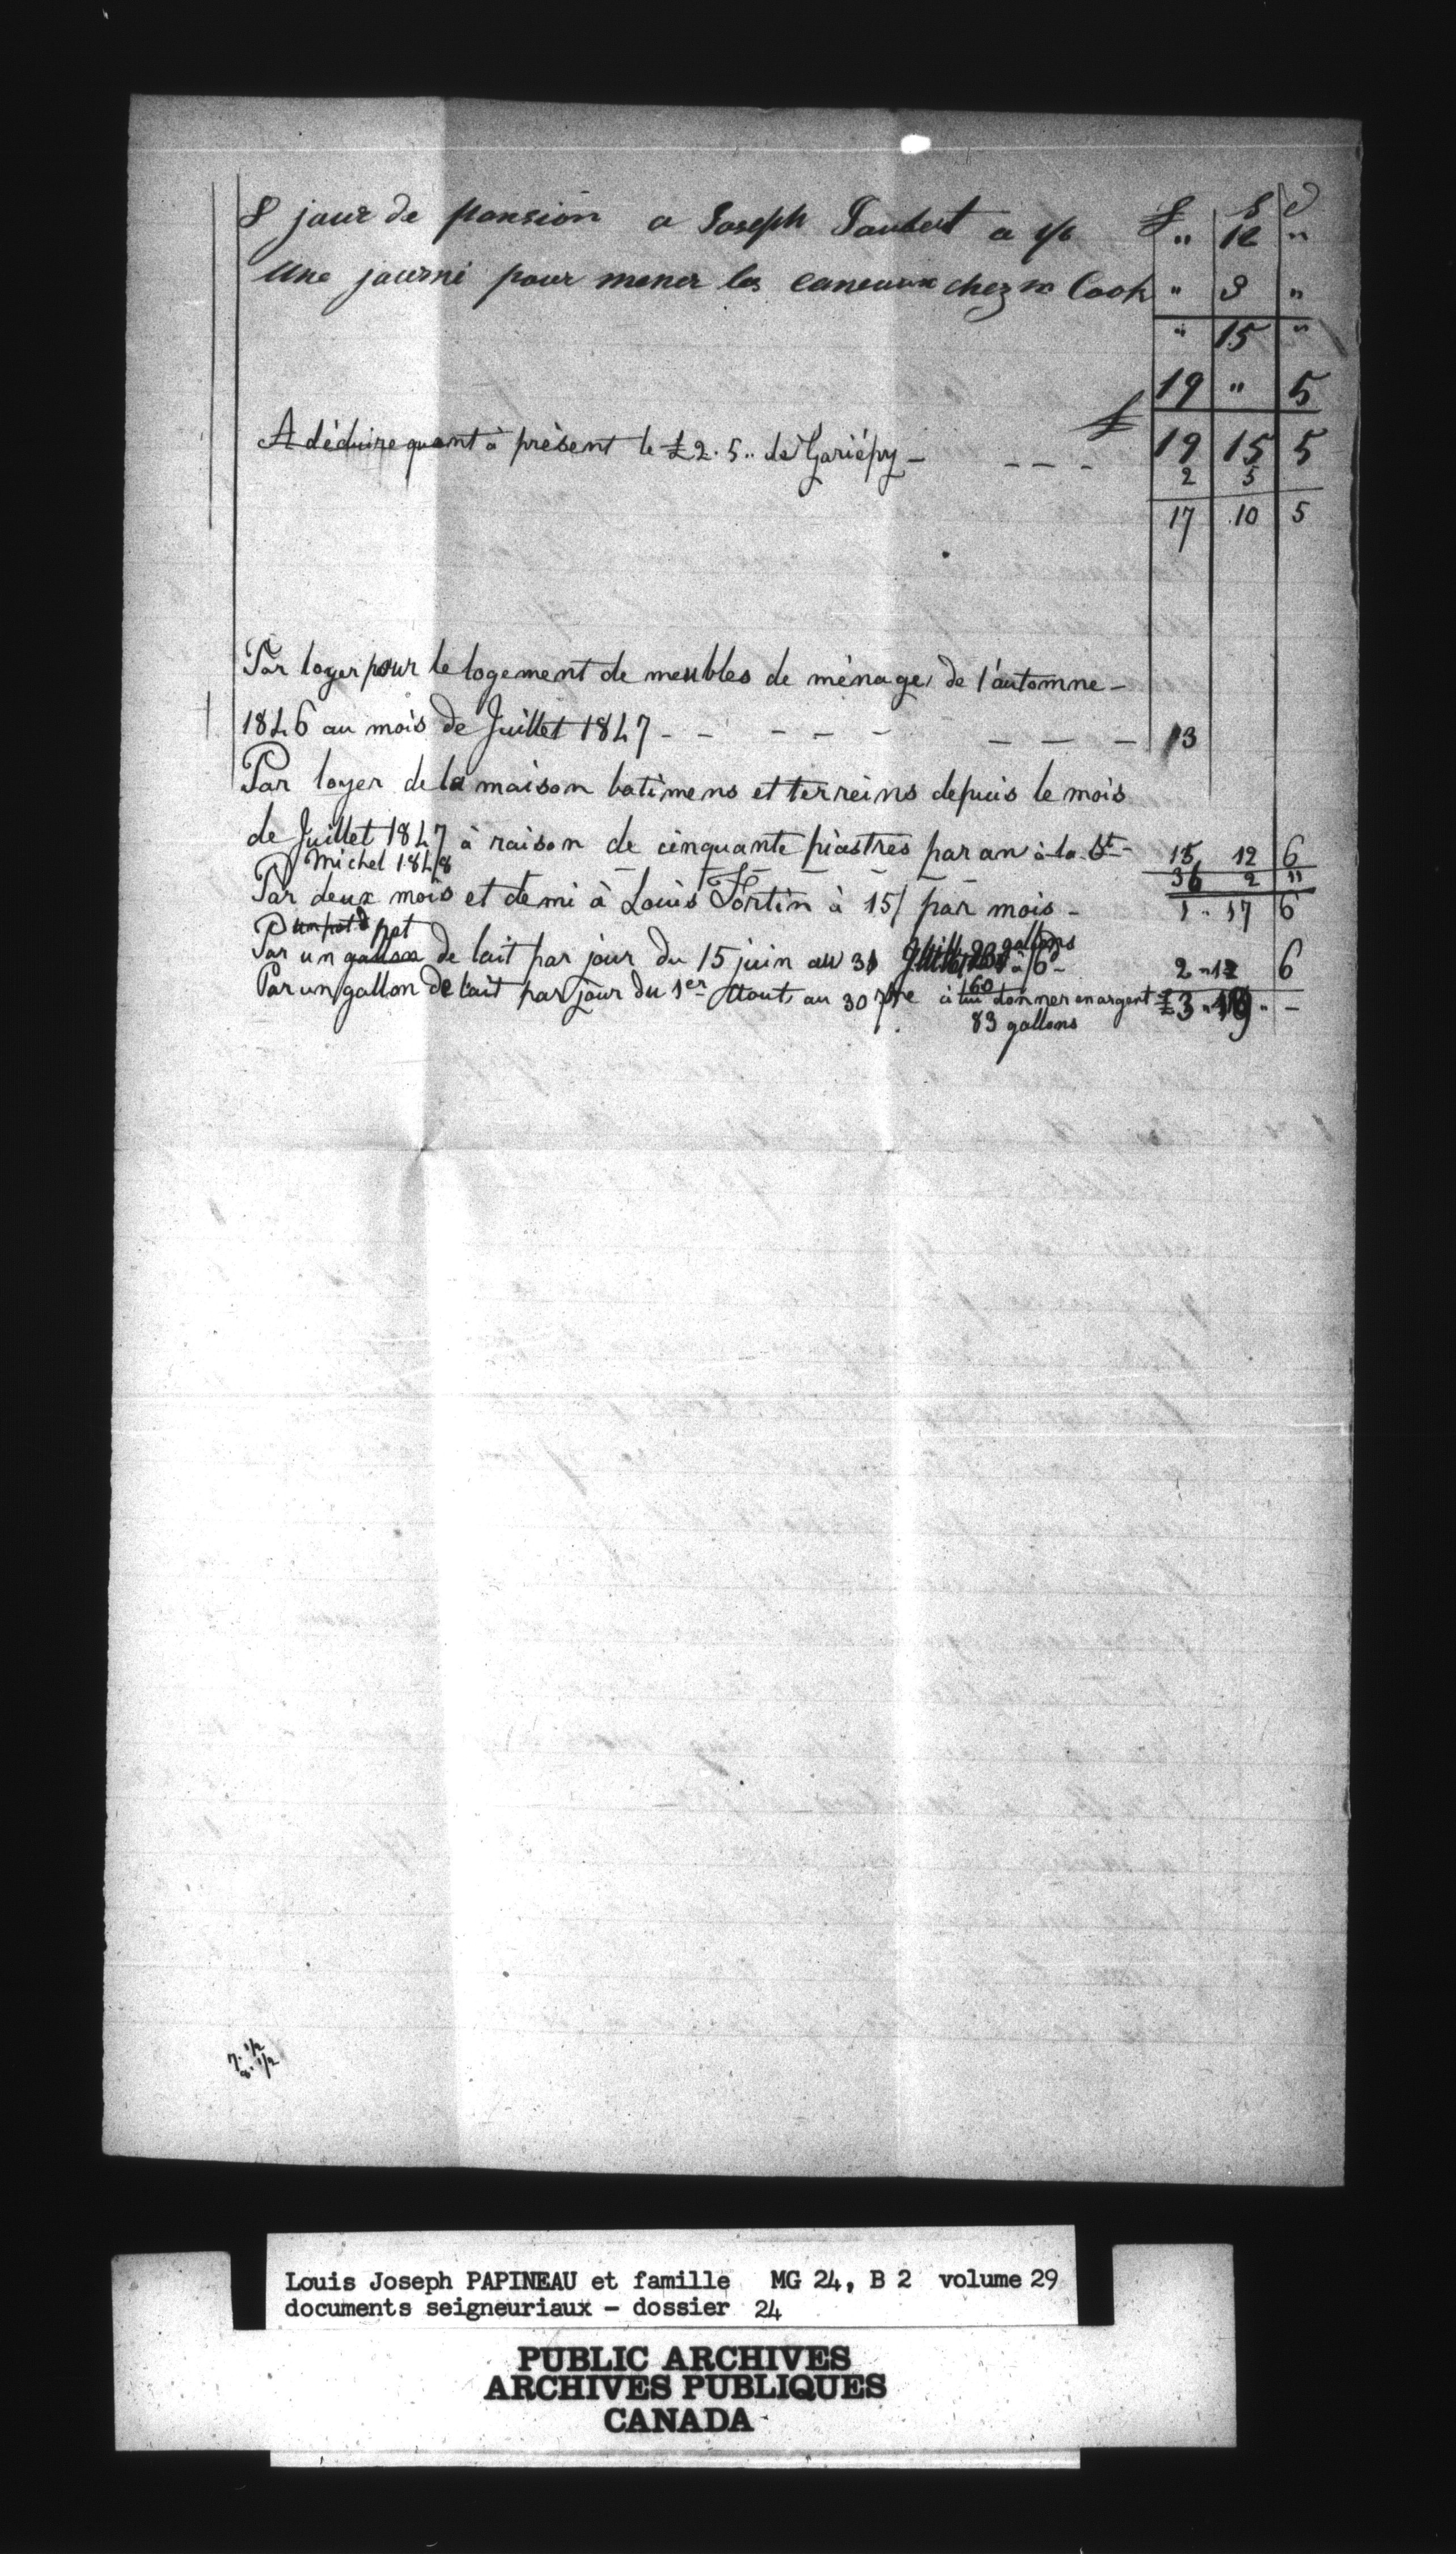 £ S d
8 jour de pansion a Joseph Taubert a 1/6 " 12 "
Une journé pour mener les caneaux chez m Cook " 3 "
" 15 "
19 " 5
£ 19 15 5
A déduire quant à présent le £2.5.. de Gariépy - - - - 2 5
17 10 5
Par loyer pour le logement de meubles de ménage de l'automne -
1846 au mois de Juillet 1847 - - - - - - - - 13
Par loyer de la maison batimens et terreins depuis le mois
de Juillet 1847 à raison de cinquante piastres par an à la St - 15 12 6
Michel 1848 - - - - - 36 2 "
Par deux mois et demi à Louis Fortin à 15/ par mois - 1 " 17 6
Par un pot de lait par jour du 15 juin au 31 Juillet 23 gallons à 6d - 2 " 12 6
Par un gallon de lait par jour du 1er Aout au 30 7bre 60 à lui donner en argent £3 " 19 " -
83 gallons
7. 1/2
8. 1/2
Louis Joseph PAPINEAU et famille MG 24, B 2 volume 29
documents seigneuriaux - dossier 24
PUBLIC ARCHIVES
ARCHIVES PUBLIQUES
CANADA